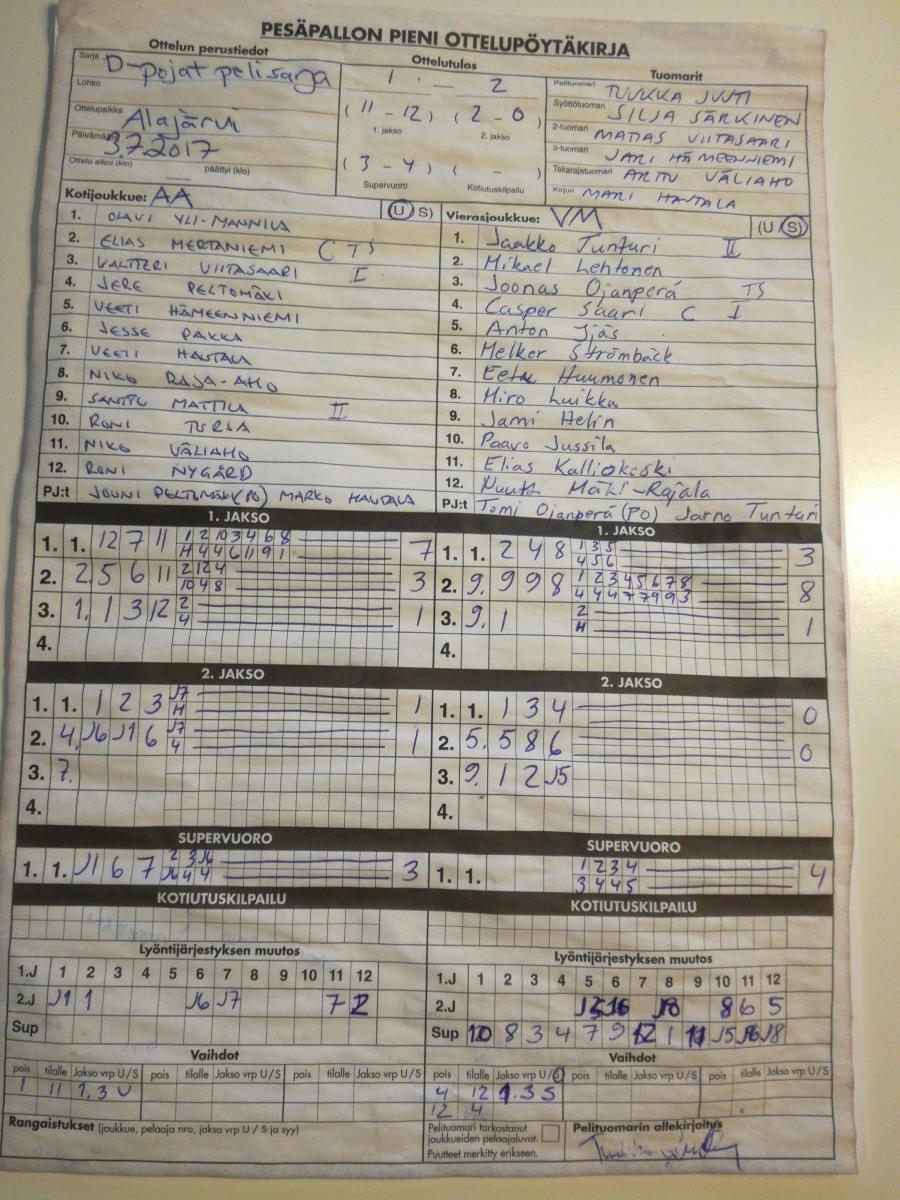 PESÄPALLON PIENI OTTELUPÖYTÄKIRJA
Ottelun perustiedot
Sarja D-pojat pelisarja
Lohko
Ottelupaikka Alajärvi
Päivämäärä 3.7.2017
Ottelu alkoi (klo) päättyi (klo)
Ottelutulos
1 - 2
(11 - 12) (2 - 0)
1. jakso 2. jakso
(3 - 4) ( - )
Supervuoro Kotiutuskilpailu
Tuomarit
Pelituomari TUUKKA JUTI
Syöttötuomari SILJA SÄRKINEN
2-tuomari MATIAS VIITASAARI
3-tuomari JARI HÄMEENNIEMI
Takarajatuomari ARTTU VÄLIAHO
Kirjuri MARI HAUTALA
Kotijoukkue: AA (U S)
1. OLAVI YLI-MANNILA
2. ELIAS MERTANIEMI C TS
3. VALTTERI VIITASAARI I
4. JERE PELTOMÄKI
5. VEETI HÄMEENNIEMI
6. JESSE PAKKA
7. VEETI HAUTALA
8. NIKO RAJA-AHO
9. SANTTU MATTILA II
10. RONI TURJA
11. NIKO VÄLIAHO
12. RONI NYGÅRD
PJ:t JOUNI PELTOMÄKI (PO) MARKO HAUTALA
Vierasjoukkue: VM (U S)
1. Jaakko Tunturi II
2. Mikael Lehtonen
3. Joonas Ojanperä TS
4. Casper Saari C I
5. Anton Ijäs
6. Melker Strömbäck
7. Eetu Huumonen
8. Miro Luikku
9. Jami Helin
10. Paavo Jussila
11. Elias Kalliokoski
12. Kuutti Mäki-Rajala
PJ:t Tomi Ojanperä (PO) Jarno Tunturi
1. JAKSO
1. 1. 12 7 11 1 2 10 3 4 6 8 7
H 4 4 6 11 9 1
2. 2. 5 6 11 2 12 4 3
10 4 8
3. 1. 1 3 12 2 1
4
4.
1. JAKSO
1. 1. 2 4 8 1 3 5 3
4 5 6
2. 9. 9 9 8 1 2 3 4 5 6 7 8 8
4 4 4 7 7 9 9 3
3. 9. 1 2 1
H
4.
2. JAKSO
1. 1. 1 2 3 J7 1
H
2. 4. J6 J1 6 J7 1
4
3. 7.
4.
2. JAKSO
1. 1. 1 3 4 0
2. 5. 5 8 6 0
3. 9. 1 2 J5
4.
SUPERVUORO
1. 1. J1 6 7 2 3 J6 3
J6 4 4
SUPERVUORO
1. 1. 1 2 3 4 4
3 4 4 5
KOTIUTUSKILPAILU
KOTIUTUSKILPAILU
Lyöntijärjestyksen muutos
1.J 1 2 3 4 5 6 7 8 9 10 11 12
2.J J1 1 J6 J7 7 12
Sup
Lyöntijärjestyksen muutos
1.J 1 2 3 4 5 6 7 8 9 10 11 12
2.J J6 J8 8 6 5
Sup 10 8 3 4 7 9 12 1 11 J5 J6 J8
Vaihdot
pois tilalle Jakso vrp U/S pois tilalle Jakso vrp U/S pois tilalle Jakso vrp U/S
1 11 1.3 U
Vaihdot
pois tilalle Jakso vrp U/S pois tilalle Jakso vrp U/S pois tilalle Jakso vrp U/S
4 12 1.3 S
12 4
Rangaistukset (joukkue, pelaaja nro, jakso vrp U / S ja syy)
Pelituomari tarkastanut
joukkueiden pelaajaluvat.
Puutteet merkitty erikseen.
Pelituomarin allekirjoitus